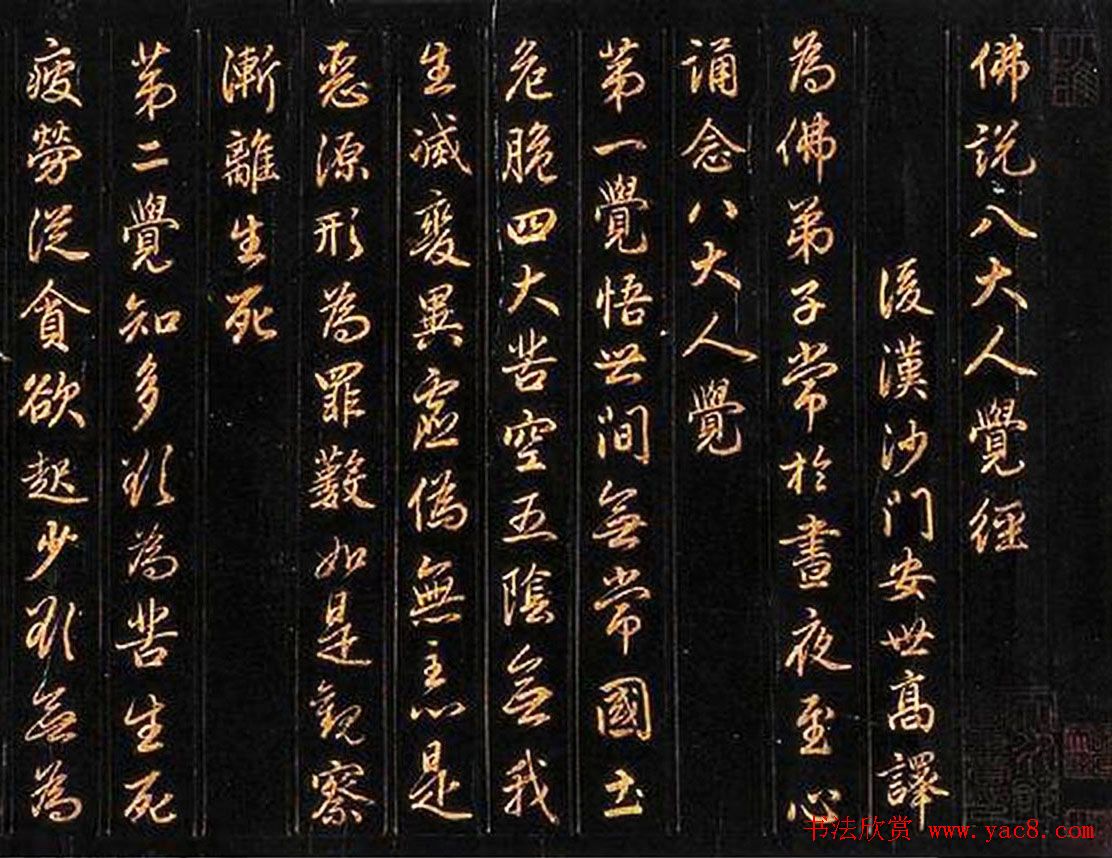 佛說八大人覺經
後漢沙門安世高譯
為佛弟子常於晝夜至心
誦念八大人覺
第一覺悟世間無常國土
危脆四大苦空五陰無我
生滅變異虛偽無主心是
惡源形為罪藪如是觀察
漸離生死
第二覺知多欲為苦生死
疲勞從貪欲起少欲無為
书法欣赏 www.yac8.com